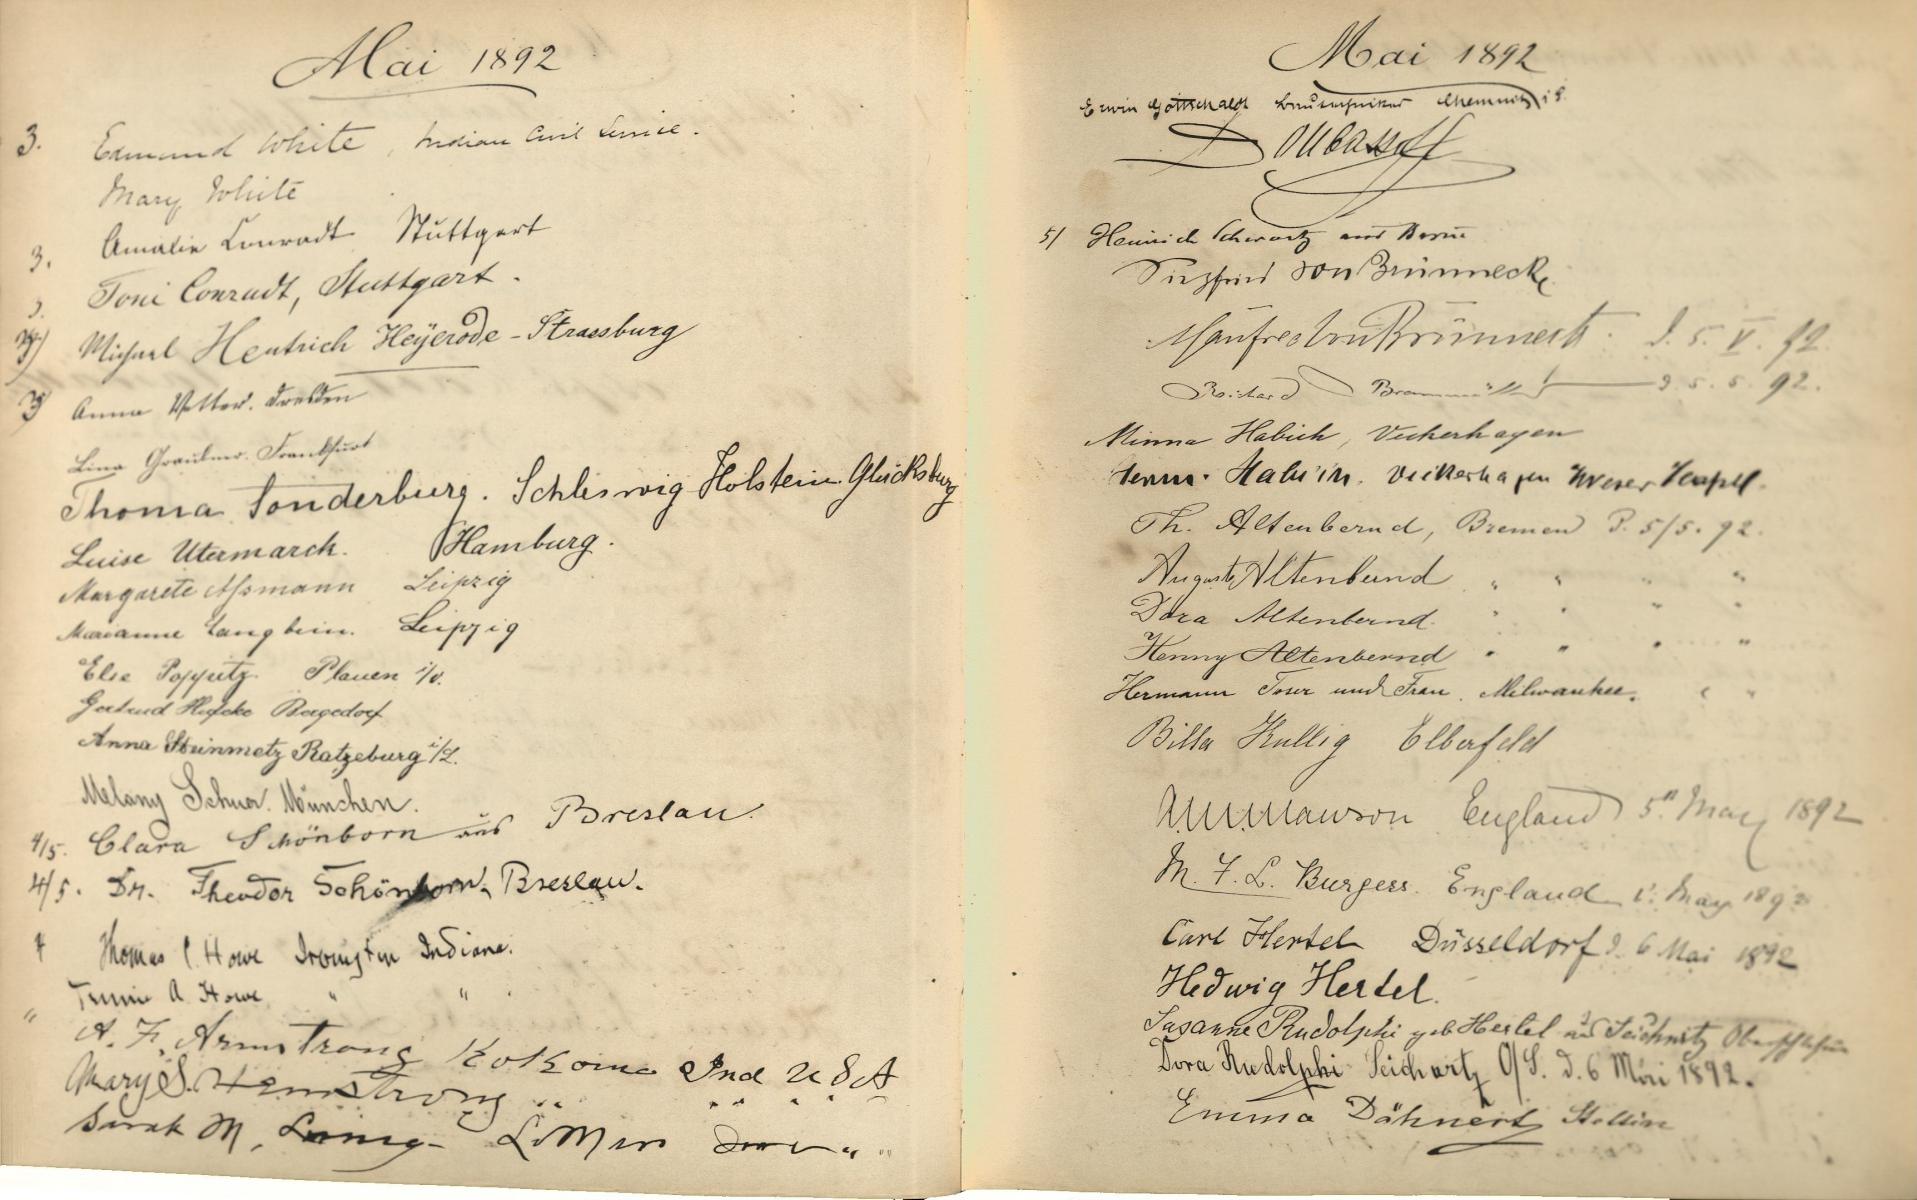 Mai 1892
3. Edmund White, Indian Civil Service.
Mary White
3. Amalie Conradt Stuttgart
3. Toni Conradt, Stuttgart.
3) Michael Hentrich Heÿerode - Strassburg
3) Anna Vetter. Dresden
Lina Frankfurt
Thoma Sonderburg. Schleswig-Holstein-Glücksburg
Luise Utermarck. Hamburg.
Margarete Assmann Leipzig
Marianne Langbein. Leipzig
Else Poppitz. Plauen i/V.
Gertrud Bergedorf
Anna Steinmetz Ratzeburg i/L.
Melany München.
4/5. Clara Schönborn aus Breslau.
4/5. Dr. Theodor Schönborn, Breslau.
4 Thomas C. Howe Irvington Indiana.
" A. Howe " "
A. F. Armstrong Kokomo Ind U S A
Mary S. Armstrong " " " " "
Sarah M. " "
Mai 1892
Erwin Gottschaldt Chemnitz i S.
5/ Heinrich Schwartz aus
Siegfried von Brünneck
Manfred von Brünneck. d. 5. V. 92.
Richard d. 5. 5. 92.
Minna Habich, Veckerhagen
Habich. Veckerhagen
Th. Altenbernd, Bremen d. 5/5. 92.
Auguste Altenbernd " " " "
Dora Altenbernd. " " " "
Henny Altenbernd " " " "
Hermann und Frau. Milwaukee. " "
Billa Kullig Elberfeld
Mawson England 5th May 1892
M. F. L. Burgess. England May 1892
Carl Hertel Düsseldorf d. 6 Mai 1892
Hedwig Hertel.
Susanne Rudolphi geb Hertel aus Oberschlesien
Dora Rudolphi O/S. d. 6 Mai 1892.
Emma Dähnert Stettin